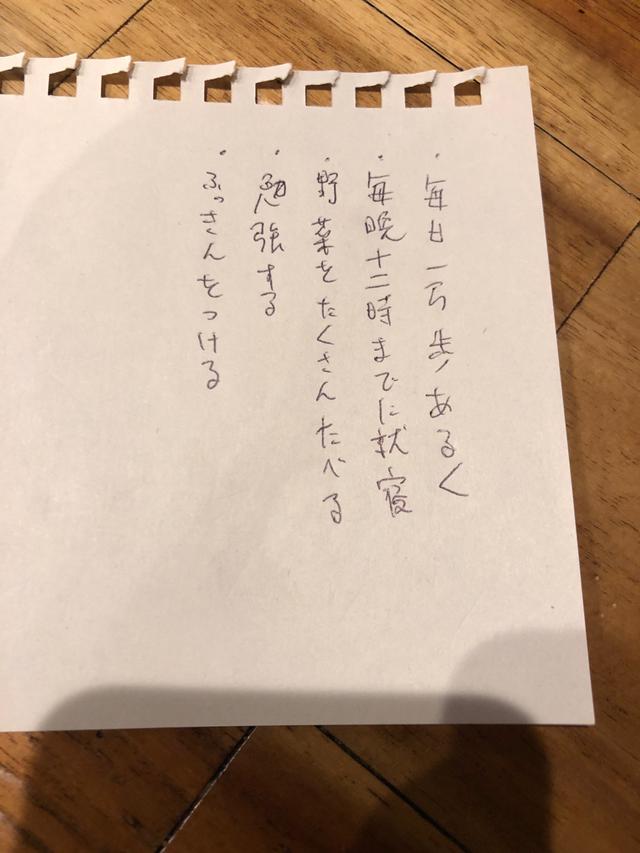 ・毎日一万歩あるく
・毎晩十二時までに就寝
・野菜をたくさんたべる
・勉強する
・ふっさんをつける